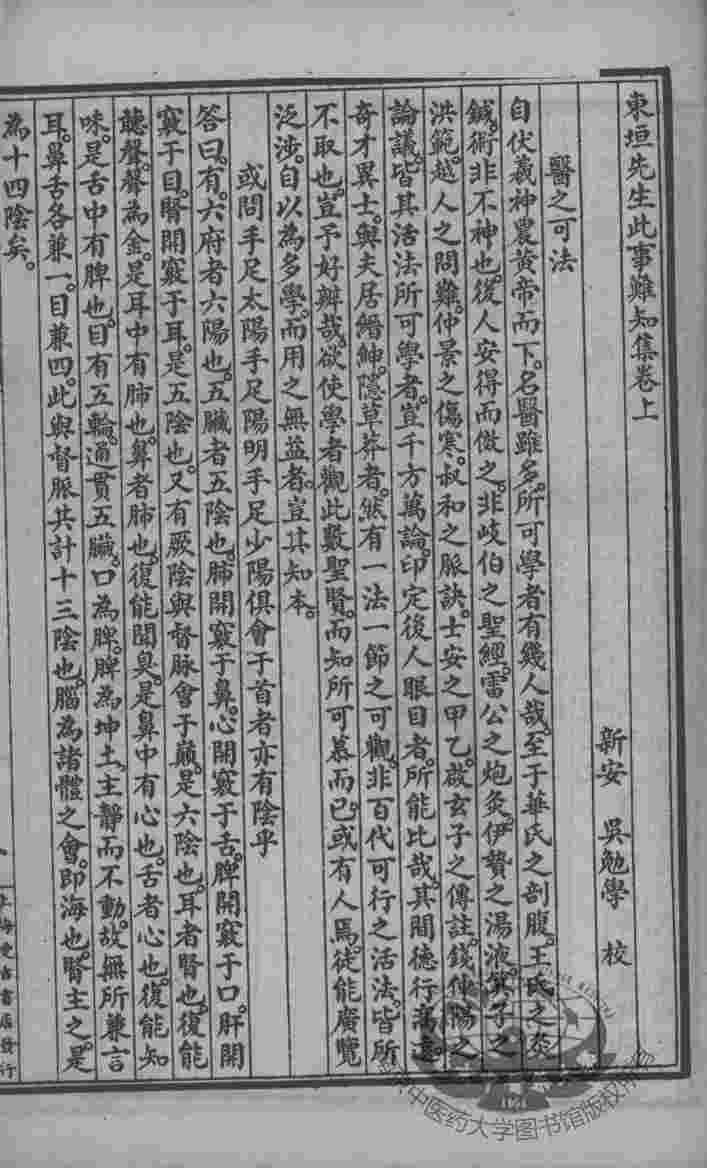 東垣先生此事難知集卷上
新安　吳勉學　校
醫之可法
自伏羲神農黃帝而下。名醫雖多。所可學者有幾人哉。至于華氏之剖腹。王氏之灸
鍼。術非不神也。後人安得而倣之。非岐伯之聖經。雷公之炮灸。伊摯之湯液。箕子之
洪範。越人之問難。仲景之傷寒。叔和之脈訣。士安之甲乙。啟玄子之傳註。錢仲陽之
論議。皆其活法所可學者。豈千方萬論。印定後人眼目者。所能比哉。其間德行高遠。
奇才異士。與夫居縉紳。隱草莽者。然有一法一節之可觀。非百代可行之活法。皆所
不取也。豈予好辨哉。欲使學者觀此數聖賢。而知所可慕而已。或有人焉。徒能廣覽
泛涉。自以為多學。而用之無益者。豈其知本。
或問手足太陽手足陽明手足少陽俱會于首者亦有陰乎
答曰。有。六府者六陽也。五臟者五陰也。肺開竅于鼻。心開竅于舌。脾開竅于口。肝開
竅于目。腎開竅于耳。是五陰也。又有厥陰與督脉會于巔。是六陰也。耳者腎也。復能
聽聲。聲為金。是耳中有肺也。鼻者肺也。復能聞臭。是鼻中有心也。舌者心也。復能知
味。是舌中有脾也。目有五輪。通貫五臟。口為脾。脾為坤土。主靜而不動。故無所兼言
耳。鼻舌各兼一。目兼四。此與督脈共計十三陰也。腦為諸體之會。即海也。腎主之。是
為十四陰矣。
上海受古書店發行
中医药大学图书馆版权所有